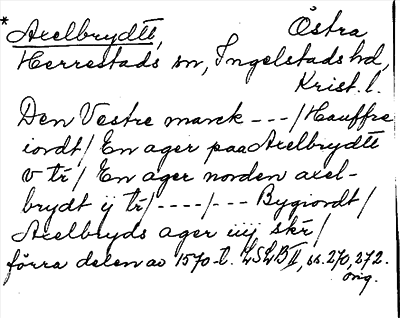 * Axelbrydtt, Östra
Herrestads sn, Ingelstads hd,
Krist. l.
Den Vestre marck ---/Hauffre
iordt/ En ager paa Axelbrydtt
v tr/ En ager norden axel-
brydt ij tr/----/--- Bygiordt/
Axelbryds ager iiij skr/
förra delen av 1570-t. LSLB II, ss. 270, 272.
orig.